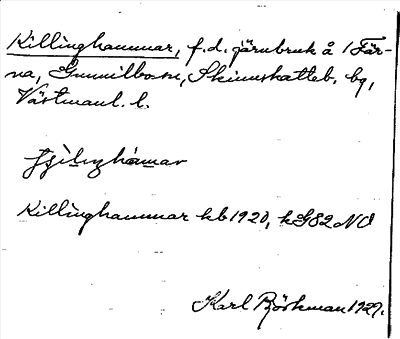 Killinghammar, f.d. järnbruk å 1 Fär-
na, Gunnilbo sn, Skinnskatteb. bg,
Västmanl. l.
Killinghammar kb 1920, kG82 NO
Karl Björkman 1929.